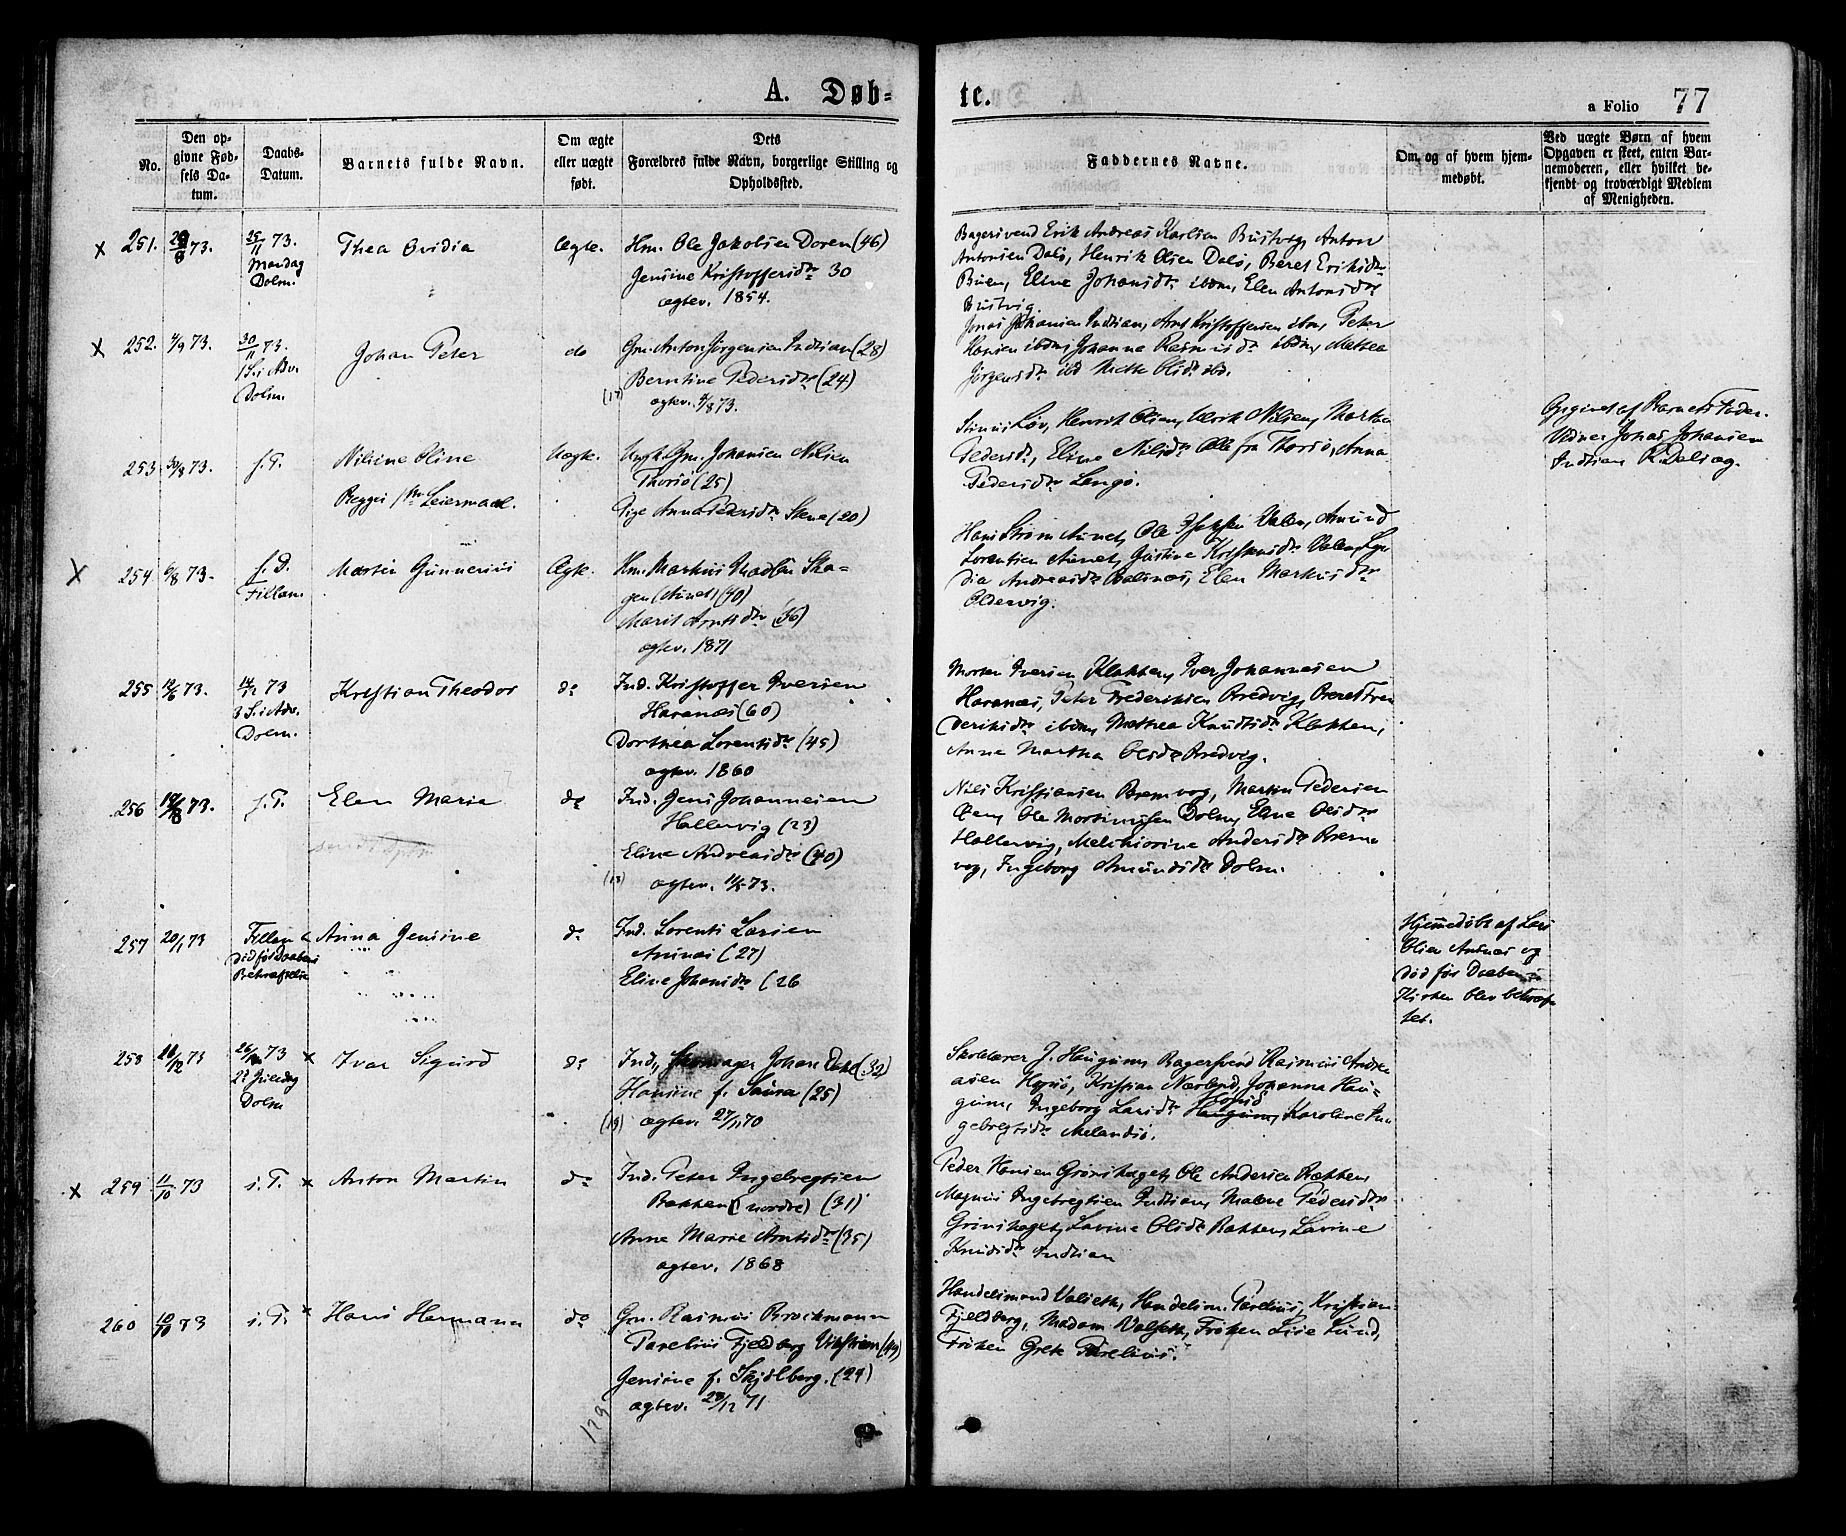 A. Døb-
te.
a Folio 77
No.
Den op-
givne Fød-
sels Da-
tum.
Daabs-
Datum.
Barnets fulde Navn.
Om ægte
eller uægte
født.
Dets
Forældres fulde Navn, borgerlige Stilling og
Opholdssted.
Faddernes Navne.
Om, og af hvem hjem-
medøbt.
Ved uægte Børn af hvem
Opgaven er skeet, enten Bar-
nemoderen, eller hvilket be-
kjendt og troværdigt Medlem
af Menigheden.
x 251. 73.
25/11 73.
Mandag
Dolm.
Thea Ovidia
Ægte.
Hm. Ole Jakobsen Doren (46)
Jensine Kristoffersdtr 30
ægtev. 1854.
Bagersvend Erik Andreas Karlsen Bustvig, Anton
Antonsen Dalø, Henrik Olsen Dalø, Beret Eriksdtr
Buen, Eline Johansdtr ibdm, Elen Antonsdtr
Bustvig
x 252. 4/9 73.
30/11 73.
1 S. i Adv.
Dolm.
Johan Peter
do
Gm. Anton Jørgensen Indtian (28)
Berntine Pedersdtr (24)
(17) ægtev. 4/8 73.
Jonas Johansen Indtian, Arnt Kristoffersen ibm, Peter
Hansen ibdm, Johanna Rasmusdtr ibdm, Mathea
Jørgensdtr ibd Mette Olsdtr ibd.
253 30/8 73.
s. T.
Nilsine Oline
Begges 1ste Leiermaal.
Uægte.
Ungk. Gm. Johansen Nilsen
Thorsø (25)
Pige Anna Pedersdtr Stene (20)
Simus Løv, Henrik Olsen, Ulrik Nilsen, Martha
Pedersdtr, Eline Nilsdtr Alle fra Thorsø, Anna
Pedersdtr Lengø.
Opgivet af Barnets Fader.
Vidner Johas Johansen
Indtian K. Delsag.
x 254 6/8 73.
s. D.
Fillan.
Martin Gunnerius
Ægte.
Hm. Markus Madsen Ska-
gen (Aunet) (40)
Marit Arntsdtr (36)
ægtev. 1871
Hans Strøm Aunet, Ole Valen, Amund
Lorentsen Aunet, Gustine Valen,
dia Andreasdtr Elen Markusdtr
Oldervig.
255 12/6 73.
14/12 73
3 S. i Adv.
Dolm.
Kristian Theodor
do
Ind. Kristoffer Iversen
Havnnæs (60)
Dorthea Lorentsdtr (45)
ægtev. 1860
Morten Iversen Klakken, Iver Johannesen
Havnnæs, Peter Frederiksen Bredvig, Beret Fre
deriksdtr ibdm, Mathea Knudtsdtr Klakken,
Anne Martha Olsdtr Bredvig.
256 19/8 73.
s. T.
Elen Maria
do
Ind. Jens Johannesen
Hallervig (23)
Eline Andreasdtr (40)
(18) ægtev. 11/5 73.
Nils Kristiansen Bremvog, Martin Pedersen
Ole Mortinusen Dolm, Eline Olsdtr
Hallervig, Melchiorine Andersdtr Brem
vog, Ingeborg Amundsdtr Dolm.
257 20/1 73
Fillan
død før Daabens
Bekræftelse
Anna Jensine
do
Ind. Lorents Larsen
Antnæs (27)
Eline Johansdtr (26
Hjemmedøbt af Lars
Olsen Antnæs og
død før Daaben i
Kirken blev bekræf
tet.
258 73
26/12 73
2d Juledag
Dolm
x Ivar Sigurd
do
Ind, Skomager Johan Dahl (32)
Hansine f. Saura (25)
(19) ægtev. 27/11 70
Skolelærer J. Haugum, Bagersvend Rasmus Andre
asen Hopsø, Kristian Nærlund, Johanna Hau-
gum, Ingeborg Larsdtr Haugum, Karoline In
gebregtsdtr Melandsø.
x 259 11/10 73
s. T.
x Anton Martin
do
Ind. Peter Ingebregtsen
Bakken (nordre) (31)
Anne Marie Arntsdtr (35)
ægtev. 1868
Peder Hansen Grønskaget, Ole Andersen Bakken,
Magnus Ingebregtsen Indtian, Malene Pedersdtr
Grinskaget, Lavine Olsdtr Bakken, Lavine
Knudsdtr Indtian
260 10/10 73
s. T.
x Hans Hermann
do
Gm. Rasmus Brockmann
Parelius Fjeldberg (49)
Jensine f. Skjølberg. (24)
ægtev. 28/12 71
129
Handelsmand Valseth, Handelsm. Parelius, Kristian
Fjeldberg, Madam Valseth, Frøken Lise Lund,
Frøken Grete Parelius.